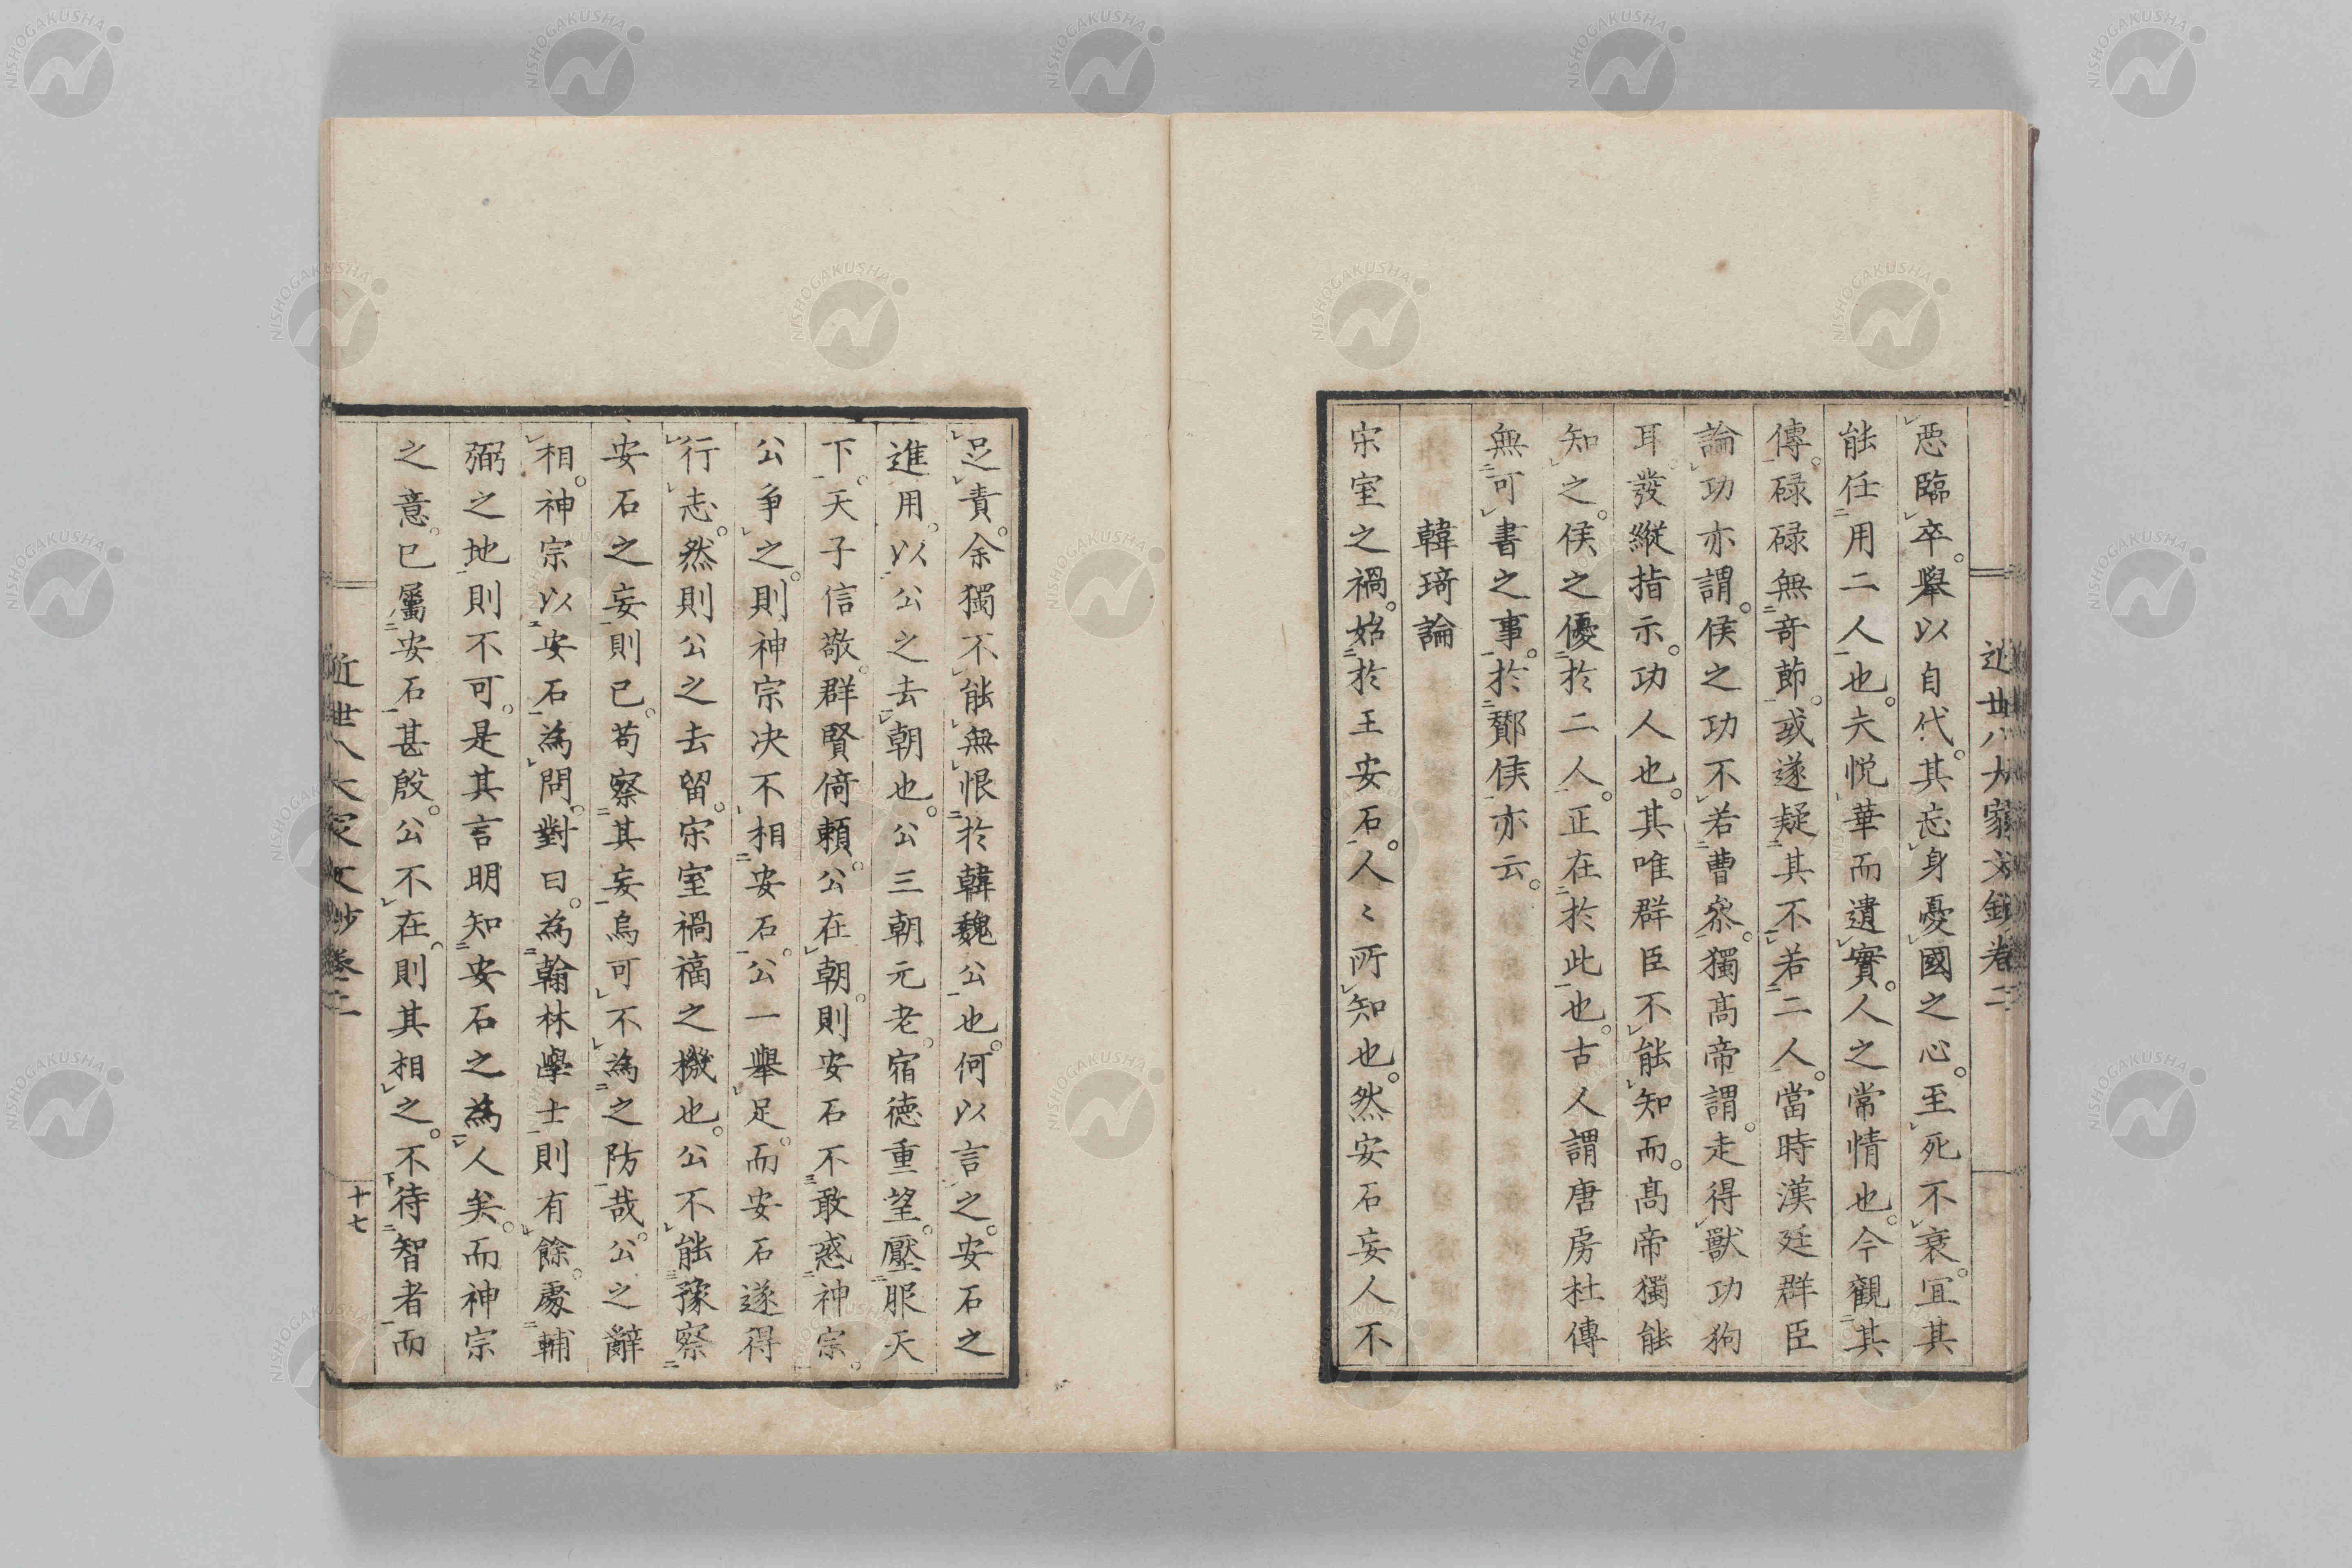 近世八大家文鈔卷二
惡臨卒。舉以自代。其忘身憂國之心。至死不衰。宜其
能任用二人也。夫悅華而遺實。人之常情也。今觀其
傳。碌碌無奇節。或遂疑其不若二人。當時漢廷群臣
論功亦謂。侯之功不若曹參。獨高帝謂。走得獸功狗
耳發縱指示。功人也。其唯群臣不能知而。高帝獨能
知之。侯之優於二人。正在於此也。古人謂唐房杜傳
無可書之事。於酇侯亦云。
韓琦論
宋室之禍。始於王安石。人〻所知也。然安石妄人不
足責。余獨不能無恨於韓魏公也。何以言之。安石之
進用。以公之去朝也。公三朝元老。宿德重望。壓服天
下。天子信敬。群賢倚賴。公在朝。則安石不敢惑神宗。
公爭之。則神宗決不相安石。公一舉足。而安石遂得
行志。然則公之去留。宋室禍福之機也。公不能豫察
安石之妄則已。苟察其妄。烏可不為之防哉。公之辭
相。神宗以安石為問。對曰。為翰林學士則有餘。處輔
弼之地則不可。是其言明知安石之為人矣。而神宗
之意。已屬安石甚殷。公不在。則其相之。不待智者而
近世八大家文鈔卷二
十七
NISHOGAKUSHA